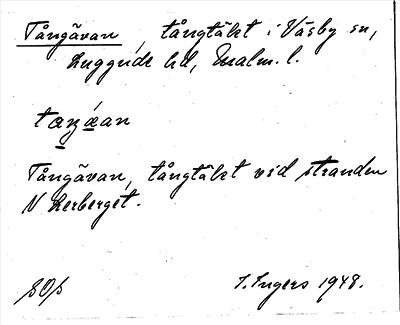 Tångävan, tångtäkt i Väsby sn,
Luggude hd, Malm. l.
taŋán
Tångävan, tångtäkt vid stranden
N Lerberget.
SOp
I. Ingers 1948.